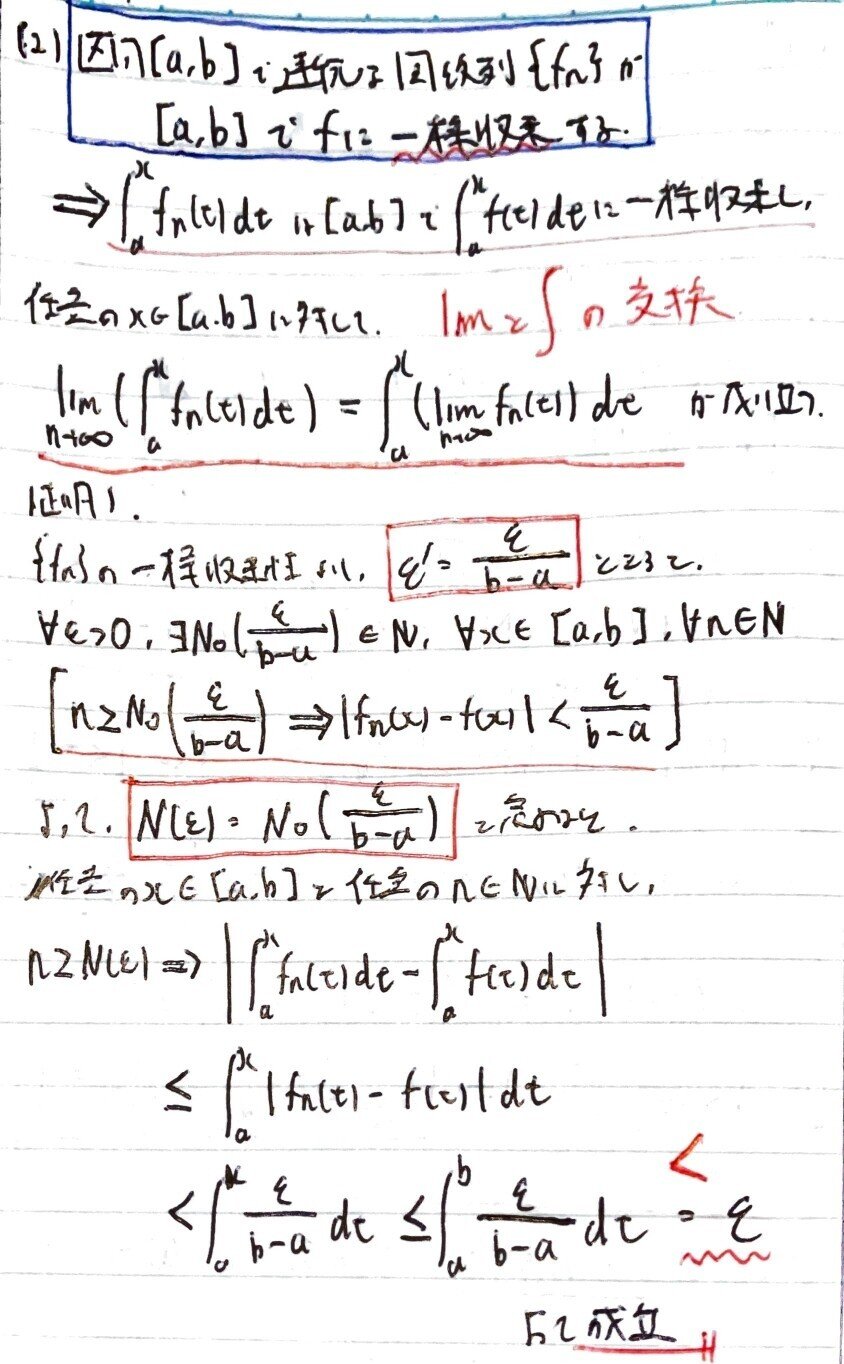 (2) 区間[a,b]で連続な関数列{fn}が
[a,b]でfに一様収束する.
⇒∫_a^x fn(t)dt は[a,b]で∫_a^x f(t)dtに一様収束し,
任意のx∈[a.b]に対して. limと∫の交換
lim_{n→∞}(∫_a^x fn(t)dt) = ∫_a^x (lim_{n→∞} fn(t)) dt が成り立つ.
証明).
{fn}の一様収束性より, ε' = ε/(b-a) ととると.
∀ε>0, ∃N₀(ε/(b-a)) ∈ N, ∀x∈[a,b], ∀n∈N
[n≥N₀(ε/(b-a)) ⇒ |fn(x) - f(x)| < ε/(b-a)]
よって. N(ε) = N₀(ε/(b-a)) と定めると.
任意のx∈[a,b]と任意のn∈Nに対し,
n≥N(ε) ⇒ |∫_a^x fn(t)dt - ∫_a^x f(t)dt|
≤ ∫_a^x |fn(t) - f(t)| dt
<
< ∫_a^x ε/(b-a) dt ≤ ∫_a^b ε/(b-a) dt = ε
よって成立